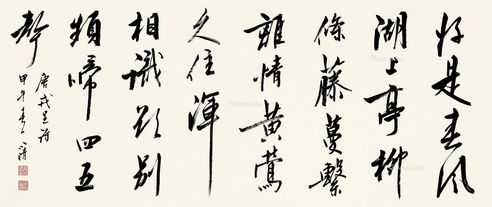 好是春风
湖上亭柳
條藤蔓繫
離情黄鶯
久住渾
相識欲别
頻啼四五
聲
唐戎昱诗
甲午春